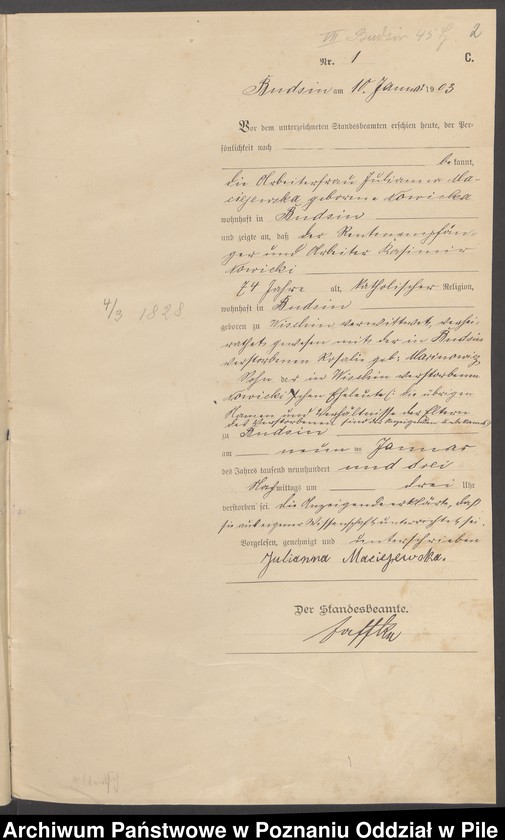 VII Budsin 45 2
Nr. 1 C.
Budsin am 10. Januar 1903
Vor dem unterzeichneten Standesbeamten erschien heute, der Per-
sönlichkeit nach
bekannt,
die Arbeiterfrau Julianna Ma-
ciejewska geborene Nowicka
wohnhaft in Budsin
und zeigte an, daß der Rentenempfän-
ger und Arbeiter Kasimir
Nowicki
74 Jahre alt, katholischer Religion,
wohnhaft in Budsin
geboren zu Wischin verwittwet, verhei-
rathet gewesen mit der in Budsin
verstorbenen Rosalie geb.
Sohn der in Wischin verstorbenen
Nowicki'schen Eheleute (: die übrigen
Namen und Verhältnisse der Eltern
des Verstorbenen sind der Anzeigenden unbekannt)
zu Budsin
am neun ten Januar
des Jahres tausend neunhundert und drei
Nachmittags um drei Uhr
verstorben sei. Die Anzeigende erklärte, daß
sie aus eigener Wissenschaft unterrichtet sei.
Vorgelesen, genehmigt und unterschrieben
Julianna Maciejewska.
Der Standesbeamte.
4/3 1828
Archiwum Państwowe w Poznaniu Oddział w Pile